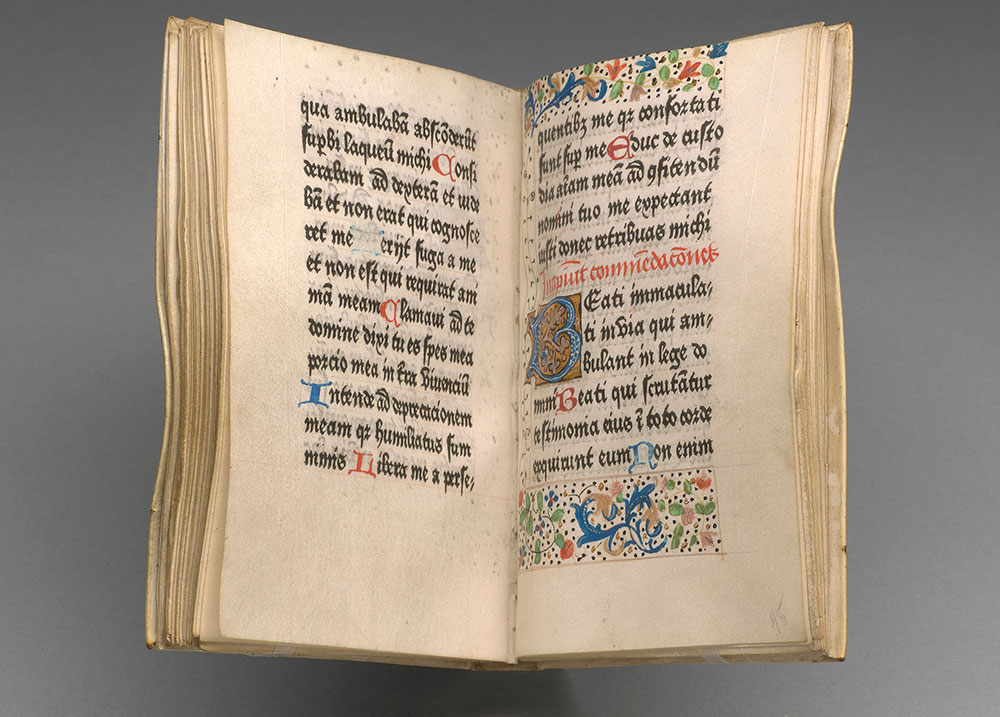 qua ambulabā abscōderūt
supbi laqueū michi Consi
derabam ad dexterā et vide
bā et non erat qui cognosce
ret me erijt fuga a me
et non est qui requirat am
mā meam Clamaui ad te
domine dixi tu es spes mea
porcio mea in tr̄a viuenciū
Intende ad deprecacionem
meam qr humiliatus sum
nimis Libera me a perse-
quentibꝫ me qr confortati
sunt sup me Educ de custo
dia aīam meā ad ꝯfitendū
nomini tuo me expectant
iusti donec retribuas michi
Incipiūt commēdacōnes
Beati immacula-
ti in via qui am-
bulant in lege do
mini Beati qui scrutātur
testimonia eius ī toto corde
exquirunt eum Non enim